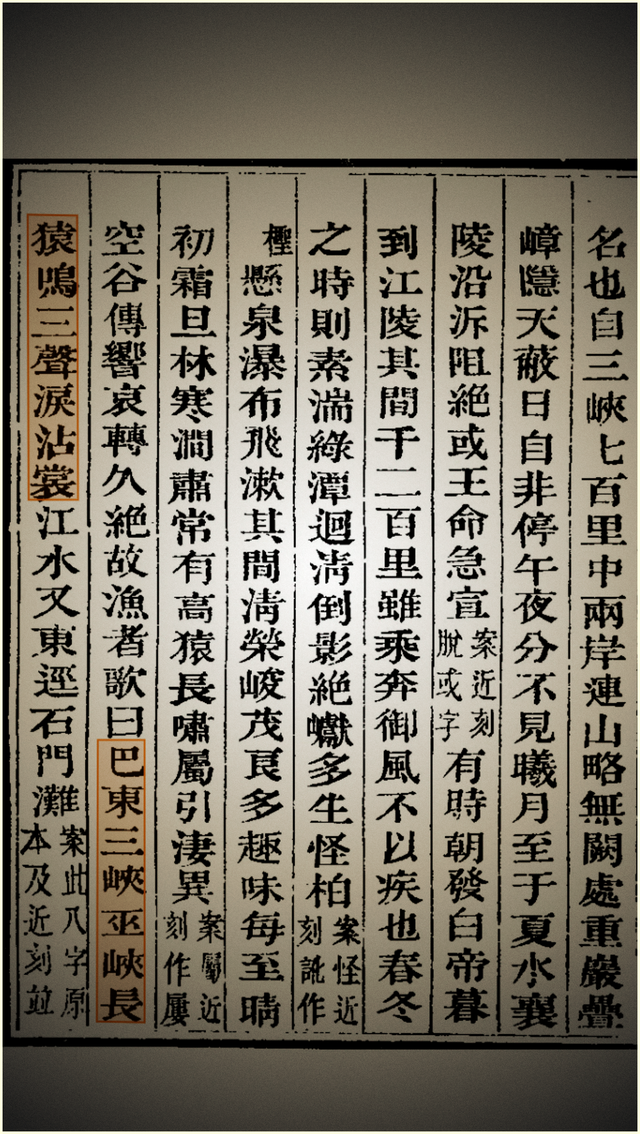 名也自三峽七百里中兩岸連山略無闕處重巖疊
嶂隱天蔽日自非停午夜分不見曦月至于夏水襄
陵沿泝阻絕或王命急宣案近刻脫或字有時朝發白帝暮
到江陵其間千二百里雖乘奔御風不以疾也春冬
之時則素湍綠潭迴清倒影絕巘多生怪柏案怪近刻訛作
檉懸泉瀑布飛漱其間清榮峻茂良多趣味每至晴
初霜旦林寒澗肅常有高猿長嘯屬引淒異案屬近刻作屢
空谷傳響哀轉久絕故漁者歌曰巴東三峽巫峽長
猿鳴三聲淚沾裳江水又東逕石門灘案此八字原本及近刻竝